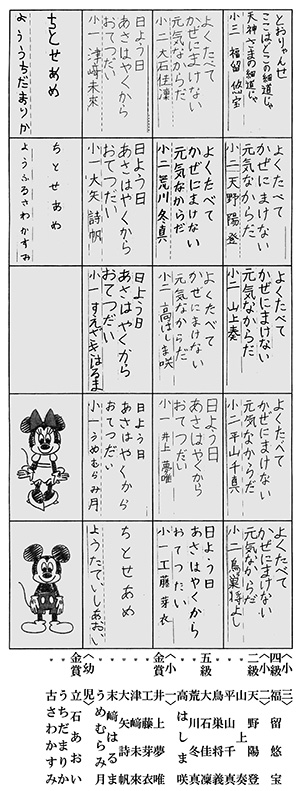 とおりゃんせ
ここはどこの細道じゃ
天神さまの細道じゃ
小三 福留悠宝
よくたべて
かぜにまけない
元気なからだ
小二 大石佳凜
日よう日
あさはやくから
おてつだい
小一 津﨑未來
ちとせあめ
ようちだまりか
よくたべて
かぜにまけない
元気なからだ
小二 天野陽登
よくたべて
かぜにまけない
元気なからだ
小二 荒川冬真
日よう日
あさはやくから
おてつだい
小一 大矢詩帆
ちとせあめ
ようふるさわかすみ
よくたべて
かぜにまけない
元気なからだ
小二 山上奏
よくたべて
かぜにまけない
元気なからだ
小二 高はしま咲
日よう日
あさはやくから
おてつだい
小一 すえざきはるま
よくたべて
かぜにまけない
元気なからだ
小二 平山千真
日よう日
あさはやくから
おてつだい
小一 井上夢唯
日よう日
あさはやくから
おてつだい
小一 うめむらみ月
よくたべて
かぜにまけない
元気なからだ
小二 鳥巣将よし
日よう日
あさはやくから
おてつだい
小一 工藤芽衣
ちとせあめ
ようたていしあおい
〈小三〉
四級 福留悠宝
〈小二〉
二級 天野陽登
〃 山上奏
〃 平山千真
〃 鳥巣将義
五級 大石佳凜
〃 荒川冬真
〃 高はしま咲
〈小一〉
金賞 井上夢唯
〃 工藤芽衣
〃 津﨑未來
〃 大矢詩帆
〃 末﨑晴真
〃 うめむらみ月
〈幼児〉
金賞 立石あおい
〃 うちだまりか
〃 古さわかすみ